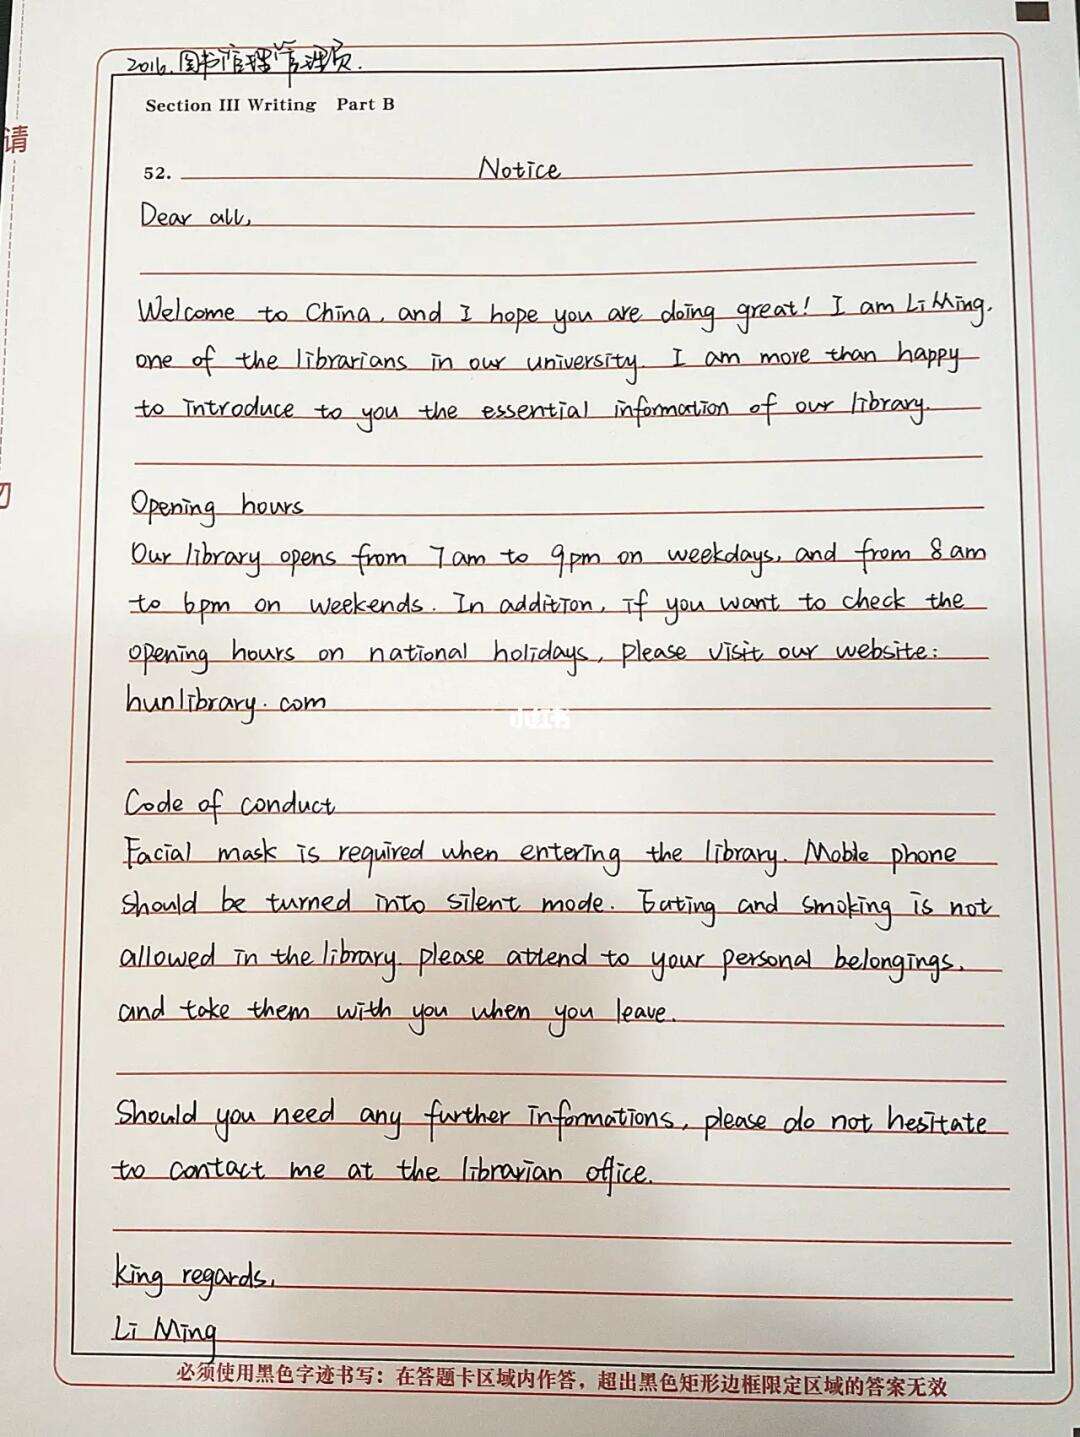 请
2016.图书馆管理员.
Section III Writing Part B
52. Notice
Dear all,
Welcome to China, and I hope you are doing great! I am Li Ming,
one of the librarians in our university. I am more than happy
to introduce to you the essential information of our library.
Opening hours
Our library opens from 7am to 9pm on weekdays, and from 8am
to 6pm on weekends. In addition, if you want to check the
opening hours on national holidays, please visit our website:
hunlibrary.com
小红书
Code of conduct
Facial mask is required when entering the library. Moble phone
should be turned into silent mode. Eating and smoking is not
allowed in the library. please attend to your personal belongings,
and take them with you when you leave.
Should you need any further informations, please do not hesitate
to contact me at the librarian office.
king regards,
Li Ming
必须使用黑色字迹书写：在答题卡区域内作答，超出黑色矩形边框限定区域的答案无效